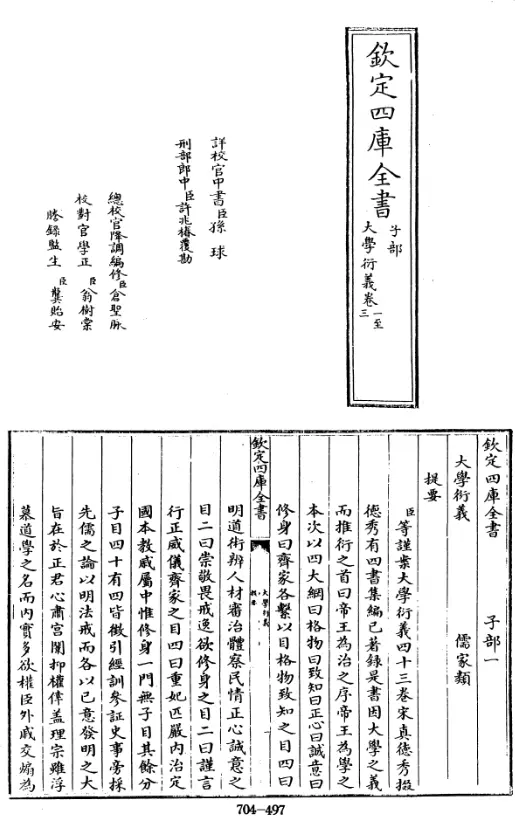 欽定四庫全書
子部
大學衍義卷一至三
詳校官中書臣孫球
刑部郎中臣許兆椿覆勘
總校官降調編修臣倉聖脉
校對官學正臣翁樹棠
謄錄監生臣龔貽安
欽定四庫全書 子部一
大學衍義 儒家類
提要
臣等謹案大學衍義四十三卷宋真德秀撰
德秀有四書集編已著録是書因大學之義
而推衍之首曰帝王為治之序帝王為學之
本次以四大綱曰格物曰致知曰正心曰誠意曰
修身曰齊家各繫以目格物致知之目四曰
欽定四庫全書
大學衍義
提要
一
明道術辨人材審治體察民情正心誠意之
目二曰崇敬畏戒逸欲修身之目二曰謹言
行正威儀齊家之目四曰重妃匹嚴内治定
國本教戚屬中惟修身一門無子目其餘分
子目四十有四皆徵引經訓參証史事旁採
先儒之論以明法戒而各以已意發明之大
旨在於正君心肅宮闈抑權倖盖理宗雖浮
慕道學之名而内實多欲權臣外戚交煽為
704-497